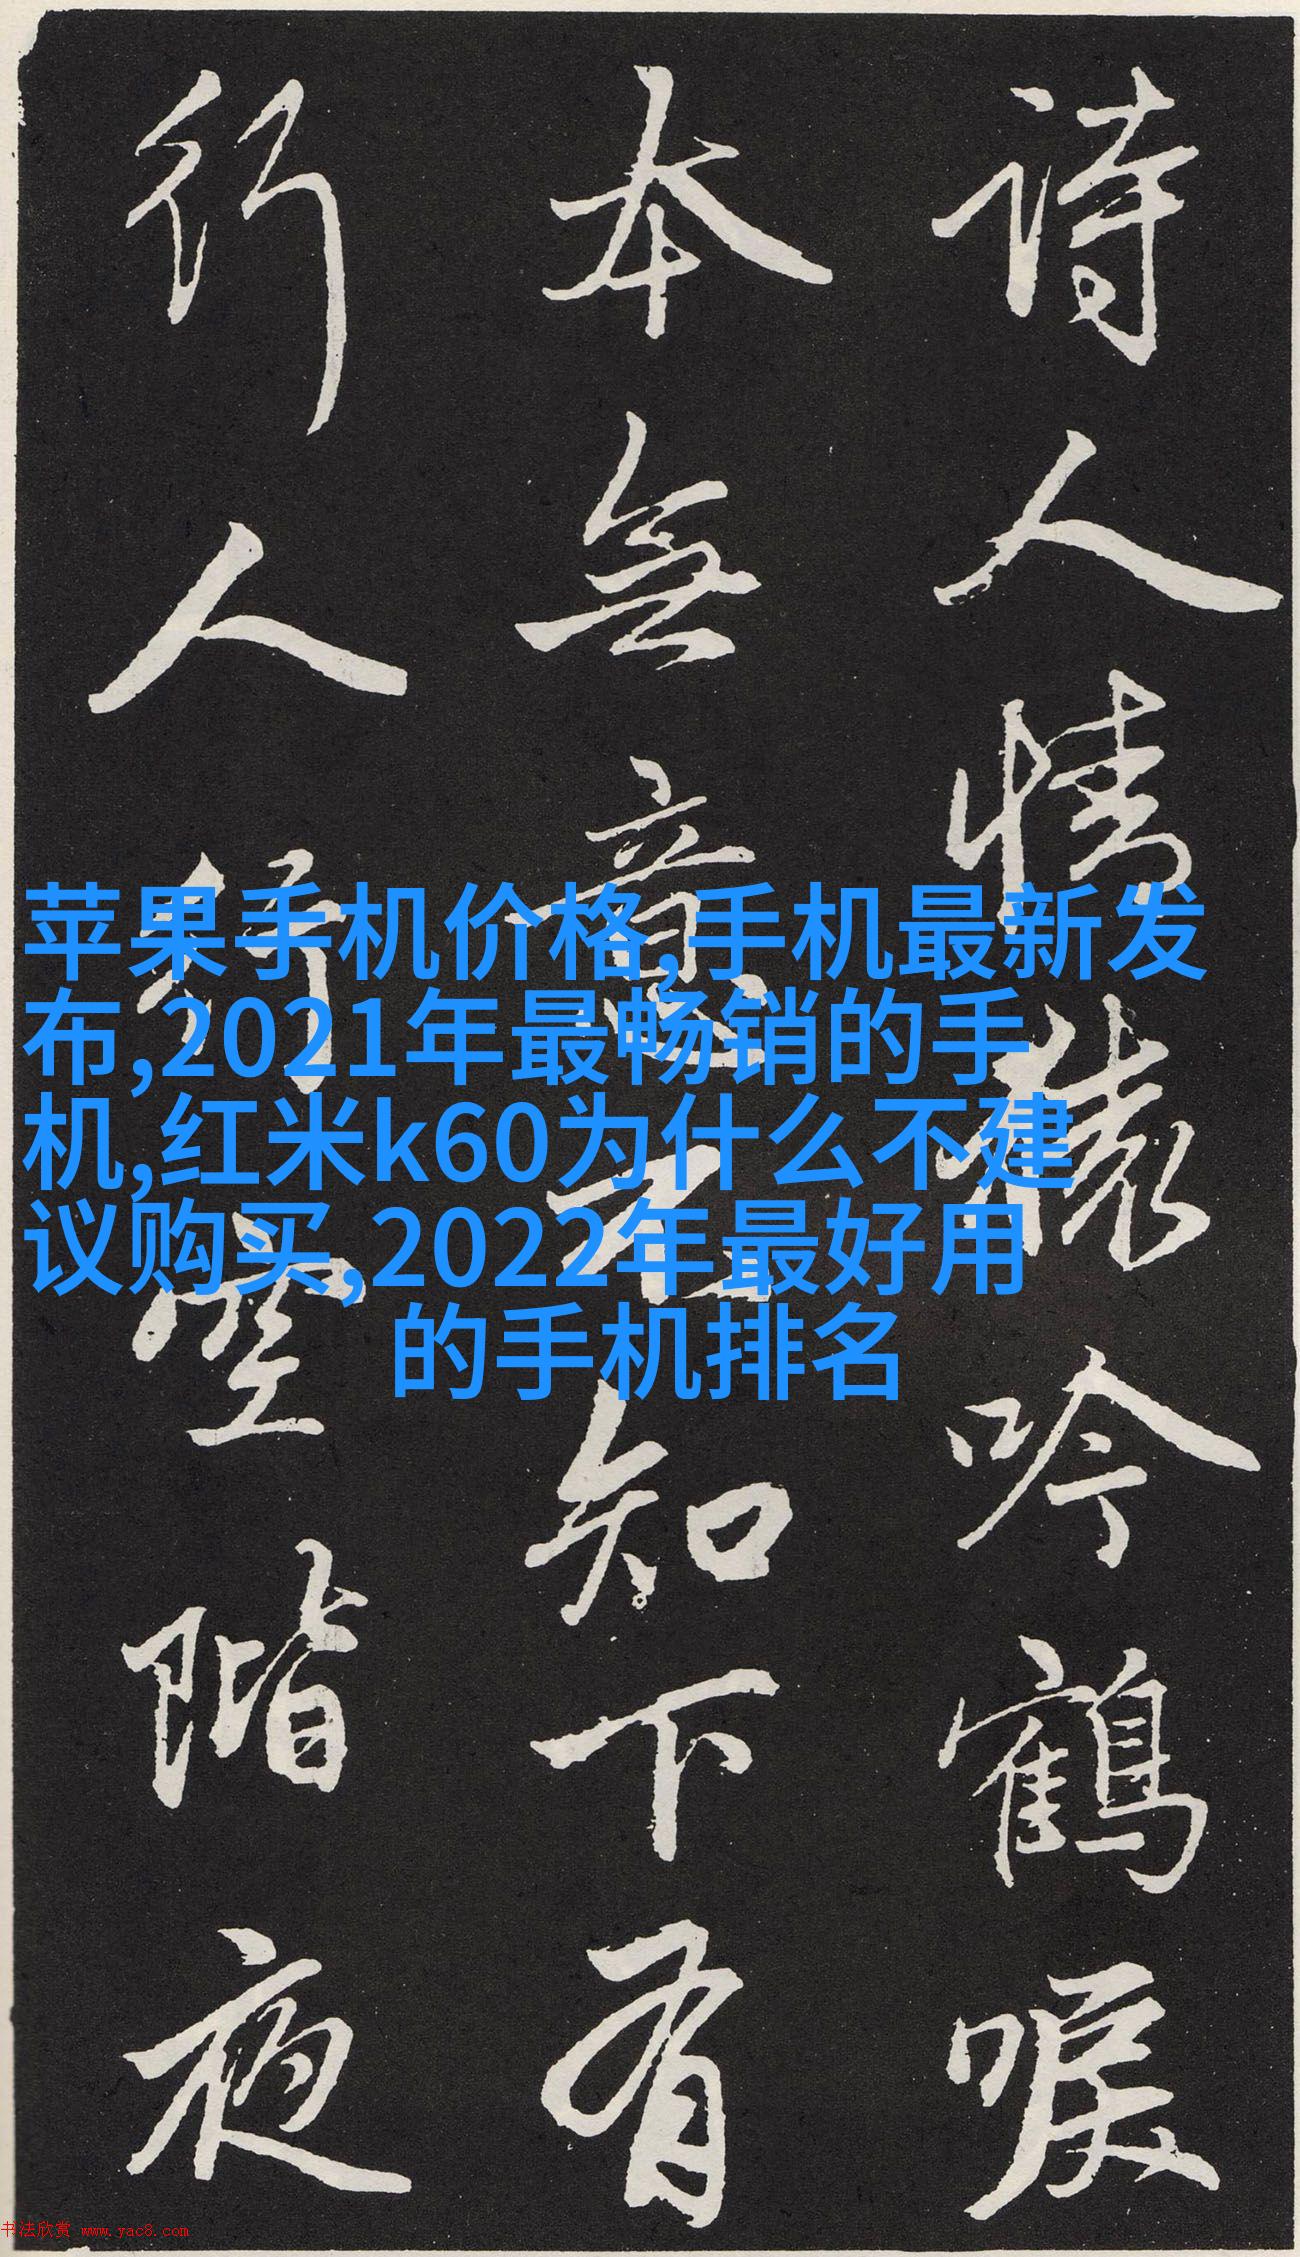 詩人情猿吟鶴唳
本無意不知下有
行人行空階夜
苹果手机价格,手机最新发
布,2021年最畅销的手
机,红米k60为什么不建
议购买,2022年最好用
的手机排名
书法欣赏 www.yac8.com